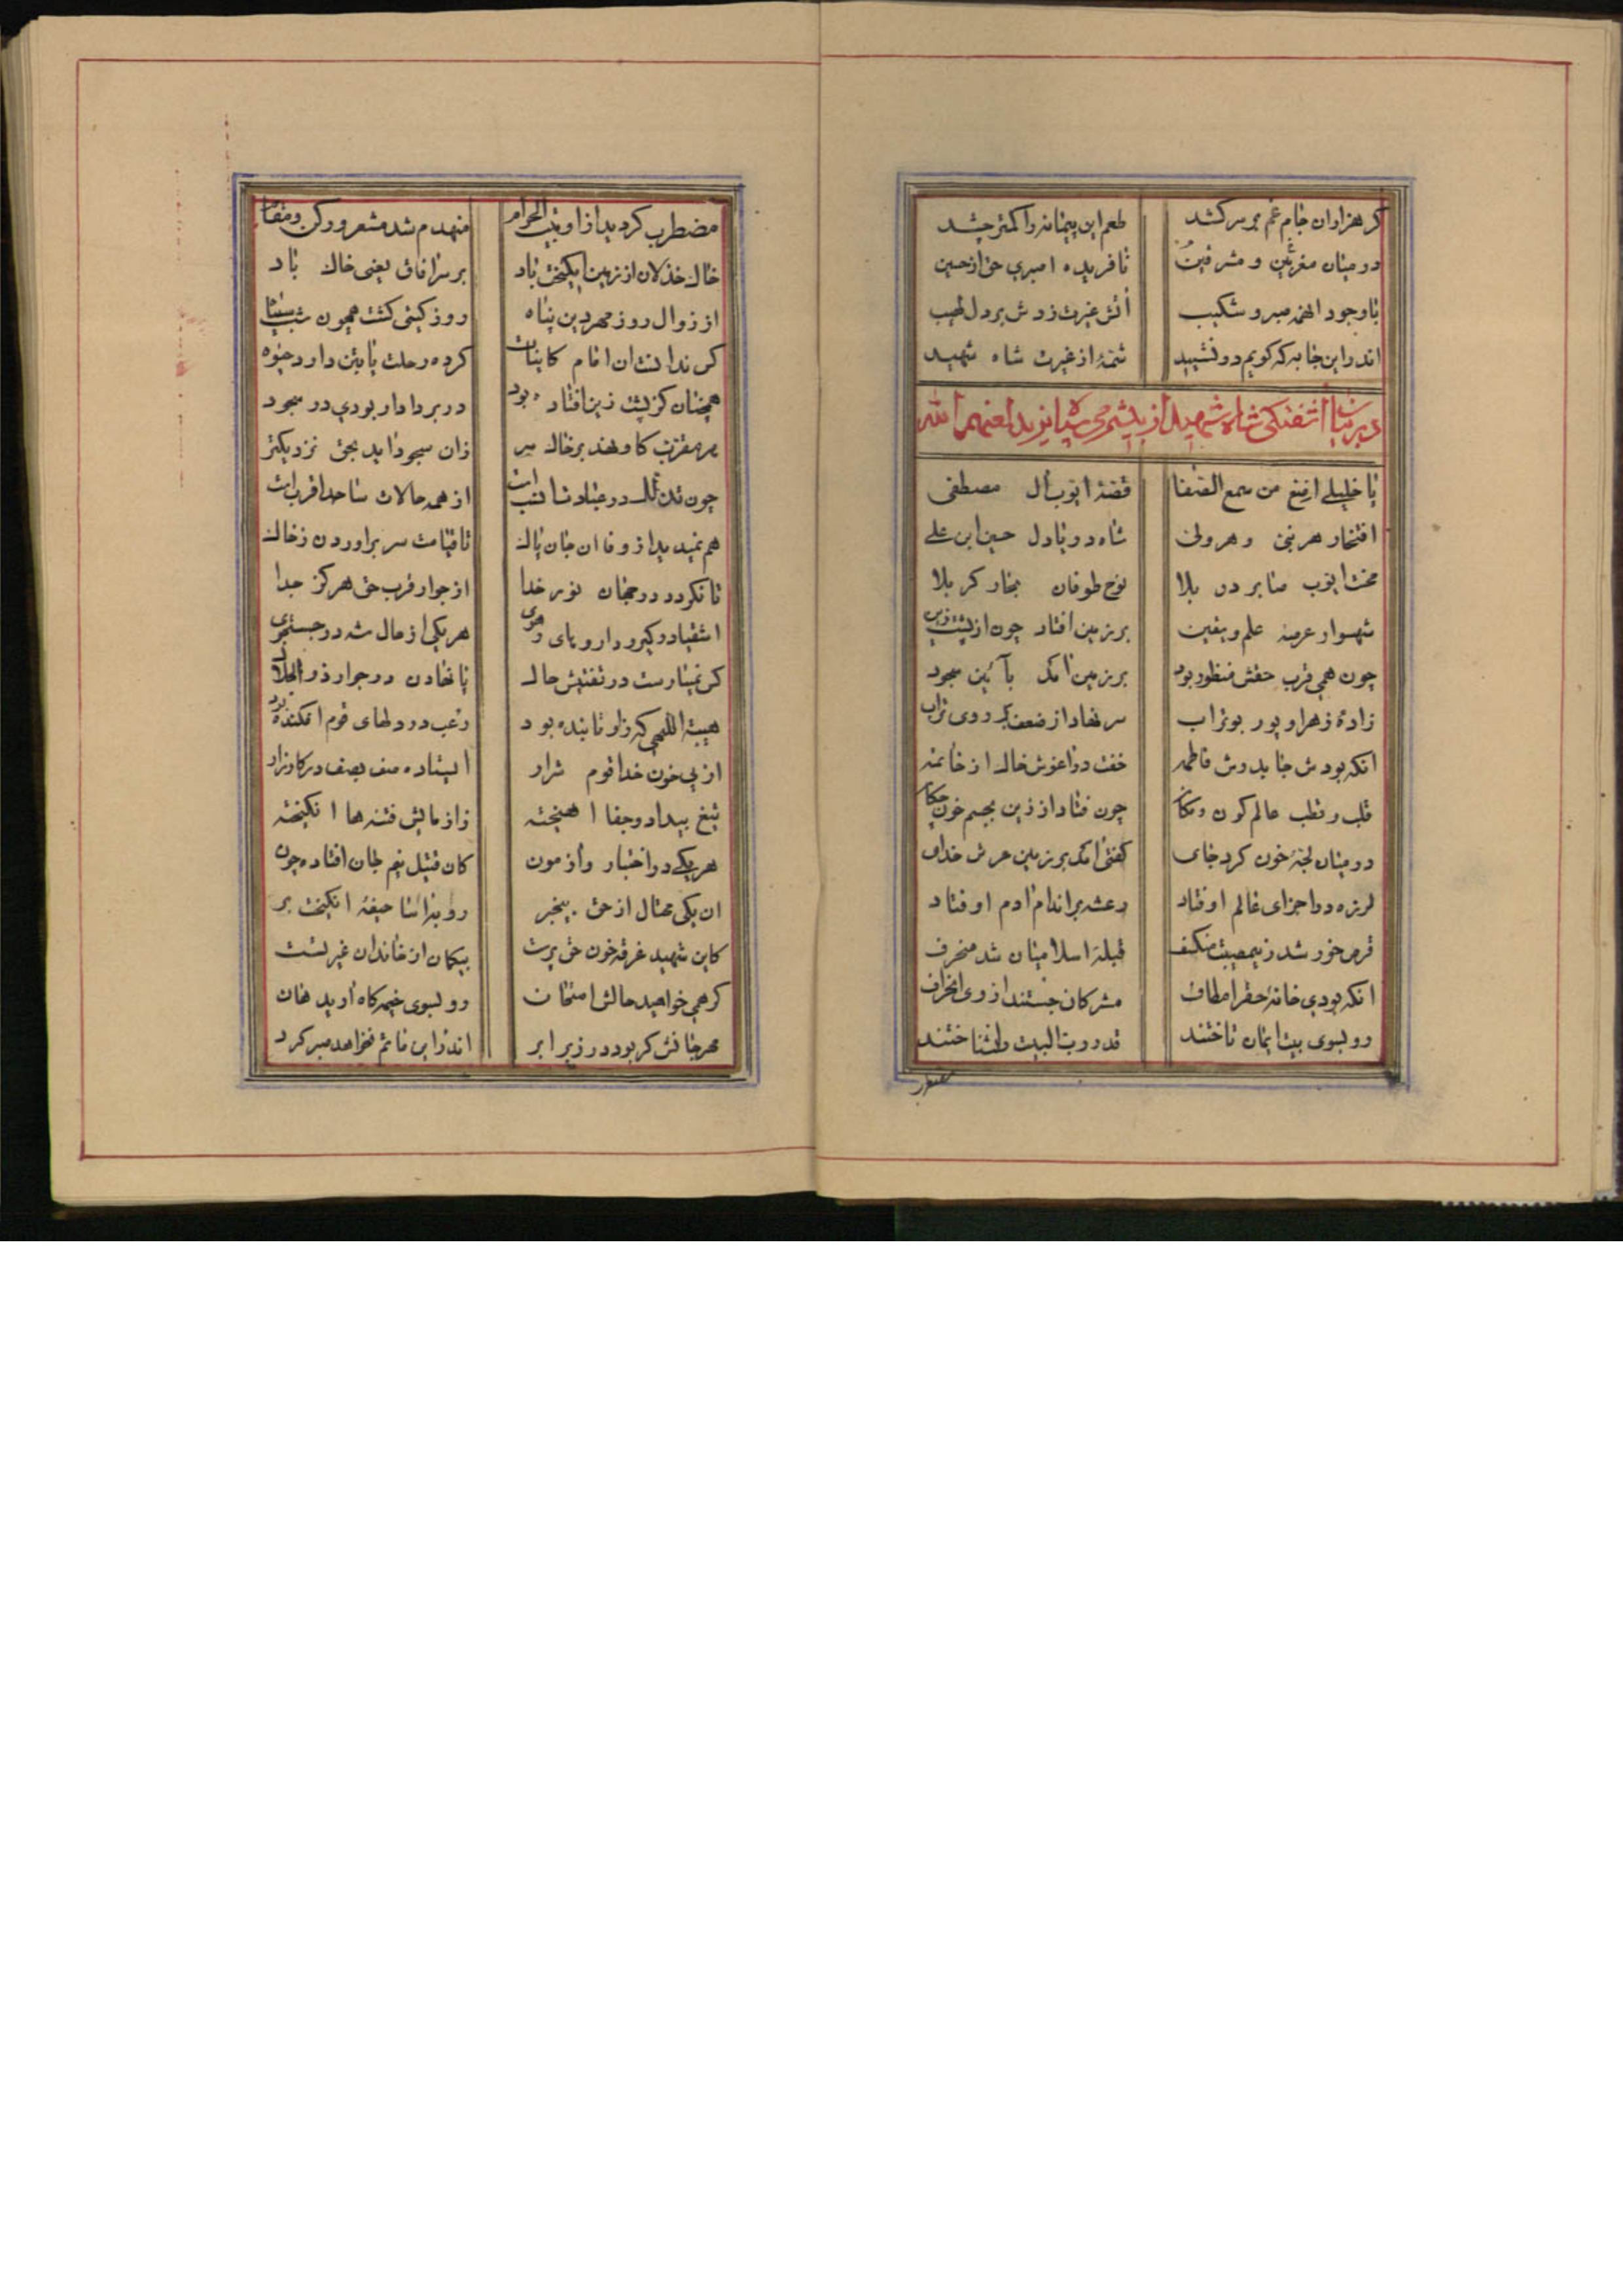 کر هزاران جام غم بر سر کشد طعم این پیمانه را کمتر چشد
در میان مغربین و مشرقین نافریده امیری حق از حسین
باوجود انهمه صبر و شکیب آتش غیرت زدش بر دل لهیب
اندر این جا به که کویم در نشیید شمهٔ از غیرت شاه شهید
در بیان آشفتکی شاه شهید از بیشرمی سپاه یزید لعنهم الله
یا خلیلی ارفع من سمع الصفا قصهٔ ایوب آل مصطفی
افتخار هر نبی و هر ولی شاه دریادل حسین ابن علی
محنت ایوب صابر در بلا نوح طوفان بخار کربلا
شهسوار عرصه علم و یقین بر زمین افتاد چون از پشت زین
چون همی قرب حقش منظور بود بر زمین آمد بآئین سجود
زادهٔ زهرا و پور بوتراب سر نهاد از ضعف بر روی تراب
انکه بودش جا بدوش فاطمه خفت در آغوش خاک از خاتمه
قلب و قطب عالم کون و مکان چون فتاد از زین بجسم خون چکان
در میان لجهٔ خون کرد جای کفتی آمد بر زمین عرش خدای
لرزه در اجزای عالم اوفتاد رعشه بر اندام آدم اوفتاد
قرص خور شد زین مصیبت منکسف قبلهٔ اسلامیان شد منحرف
انکه بودی خانهٔ حقرا مطاف مشرکان جستند از وی انحراف
رو بسوی بیت ایمان تاختند قدر رب البیت را نشناختند
مضطرب
مضطرب کردید از او بیت الحرام منهدم شد مشعر و رکن و مقام
خاک خذلان از زمین انکیخت باد بر سر آفاق یعنی خاک باد
از زوال روز مهر دین پناه روز کیتی کشت همچون شب سیاه
کس ندانست ان امام کاینات کرده رحلت یا بتن دارد حیوة
همچنان کز پشت زین افتاده بود در بر دادار بودی در سجود
هر مقرب کاو نهد بر خاک سر زان سجود اید بحق نزدیکتر
چون تذلل در عبادت انسب است از همه حالات ساجد اقرب است
هم نمیدید از وفا ان جان پاک تا قیامت سر برآوردن ز خاک
تا نکردد در جنان نور خدا از جوار قرب حق هرکز جدا
اشقیا در کیر و دار و های و هوی هر یکی از مال شه در جستجوی
کس نمییارست در تفتیش حال پا نهادن در جوار ذو الجلال
هیبة اللهی که زاو تابنده بود رعب در دلهای قوم افکنده بود
از پی خون خدا قوم شرار ایستاده صف بصف در کارزار
تیغ بیداد و جفا اهیخته ز ازمایش فتنه ها انکیخته
هر یکی در اختبار و آزمون کان قتیل نیم جان افتاده چون
ان یکی محتال از حق بیخبر روبه آسا حیفهٔ انکیخت بر
کاین شهید غرقه خون حق پرست بیکمان از خاندان غیرتست
کر همی خواهید حالش امتحان رو بسوی خیمه کاه آرید هان
هر جفائش کر بود در زیر ابر اندر این ماتم نخواهد صبر کرد